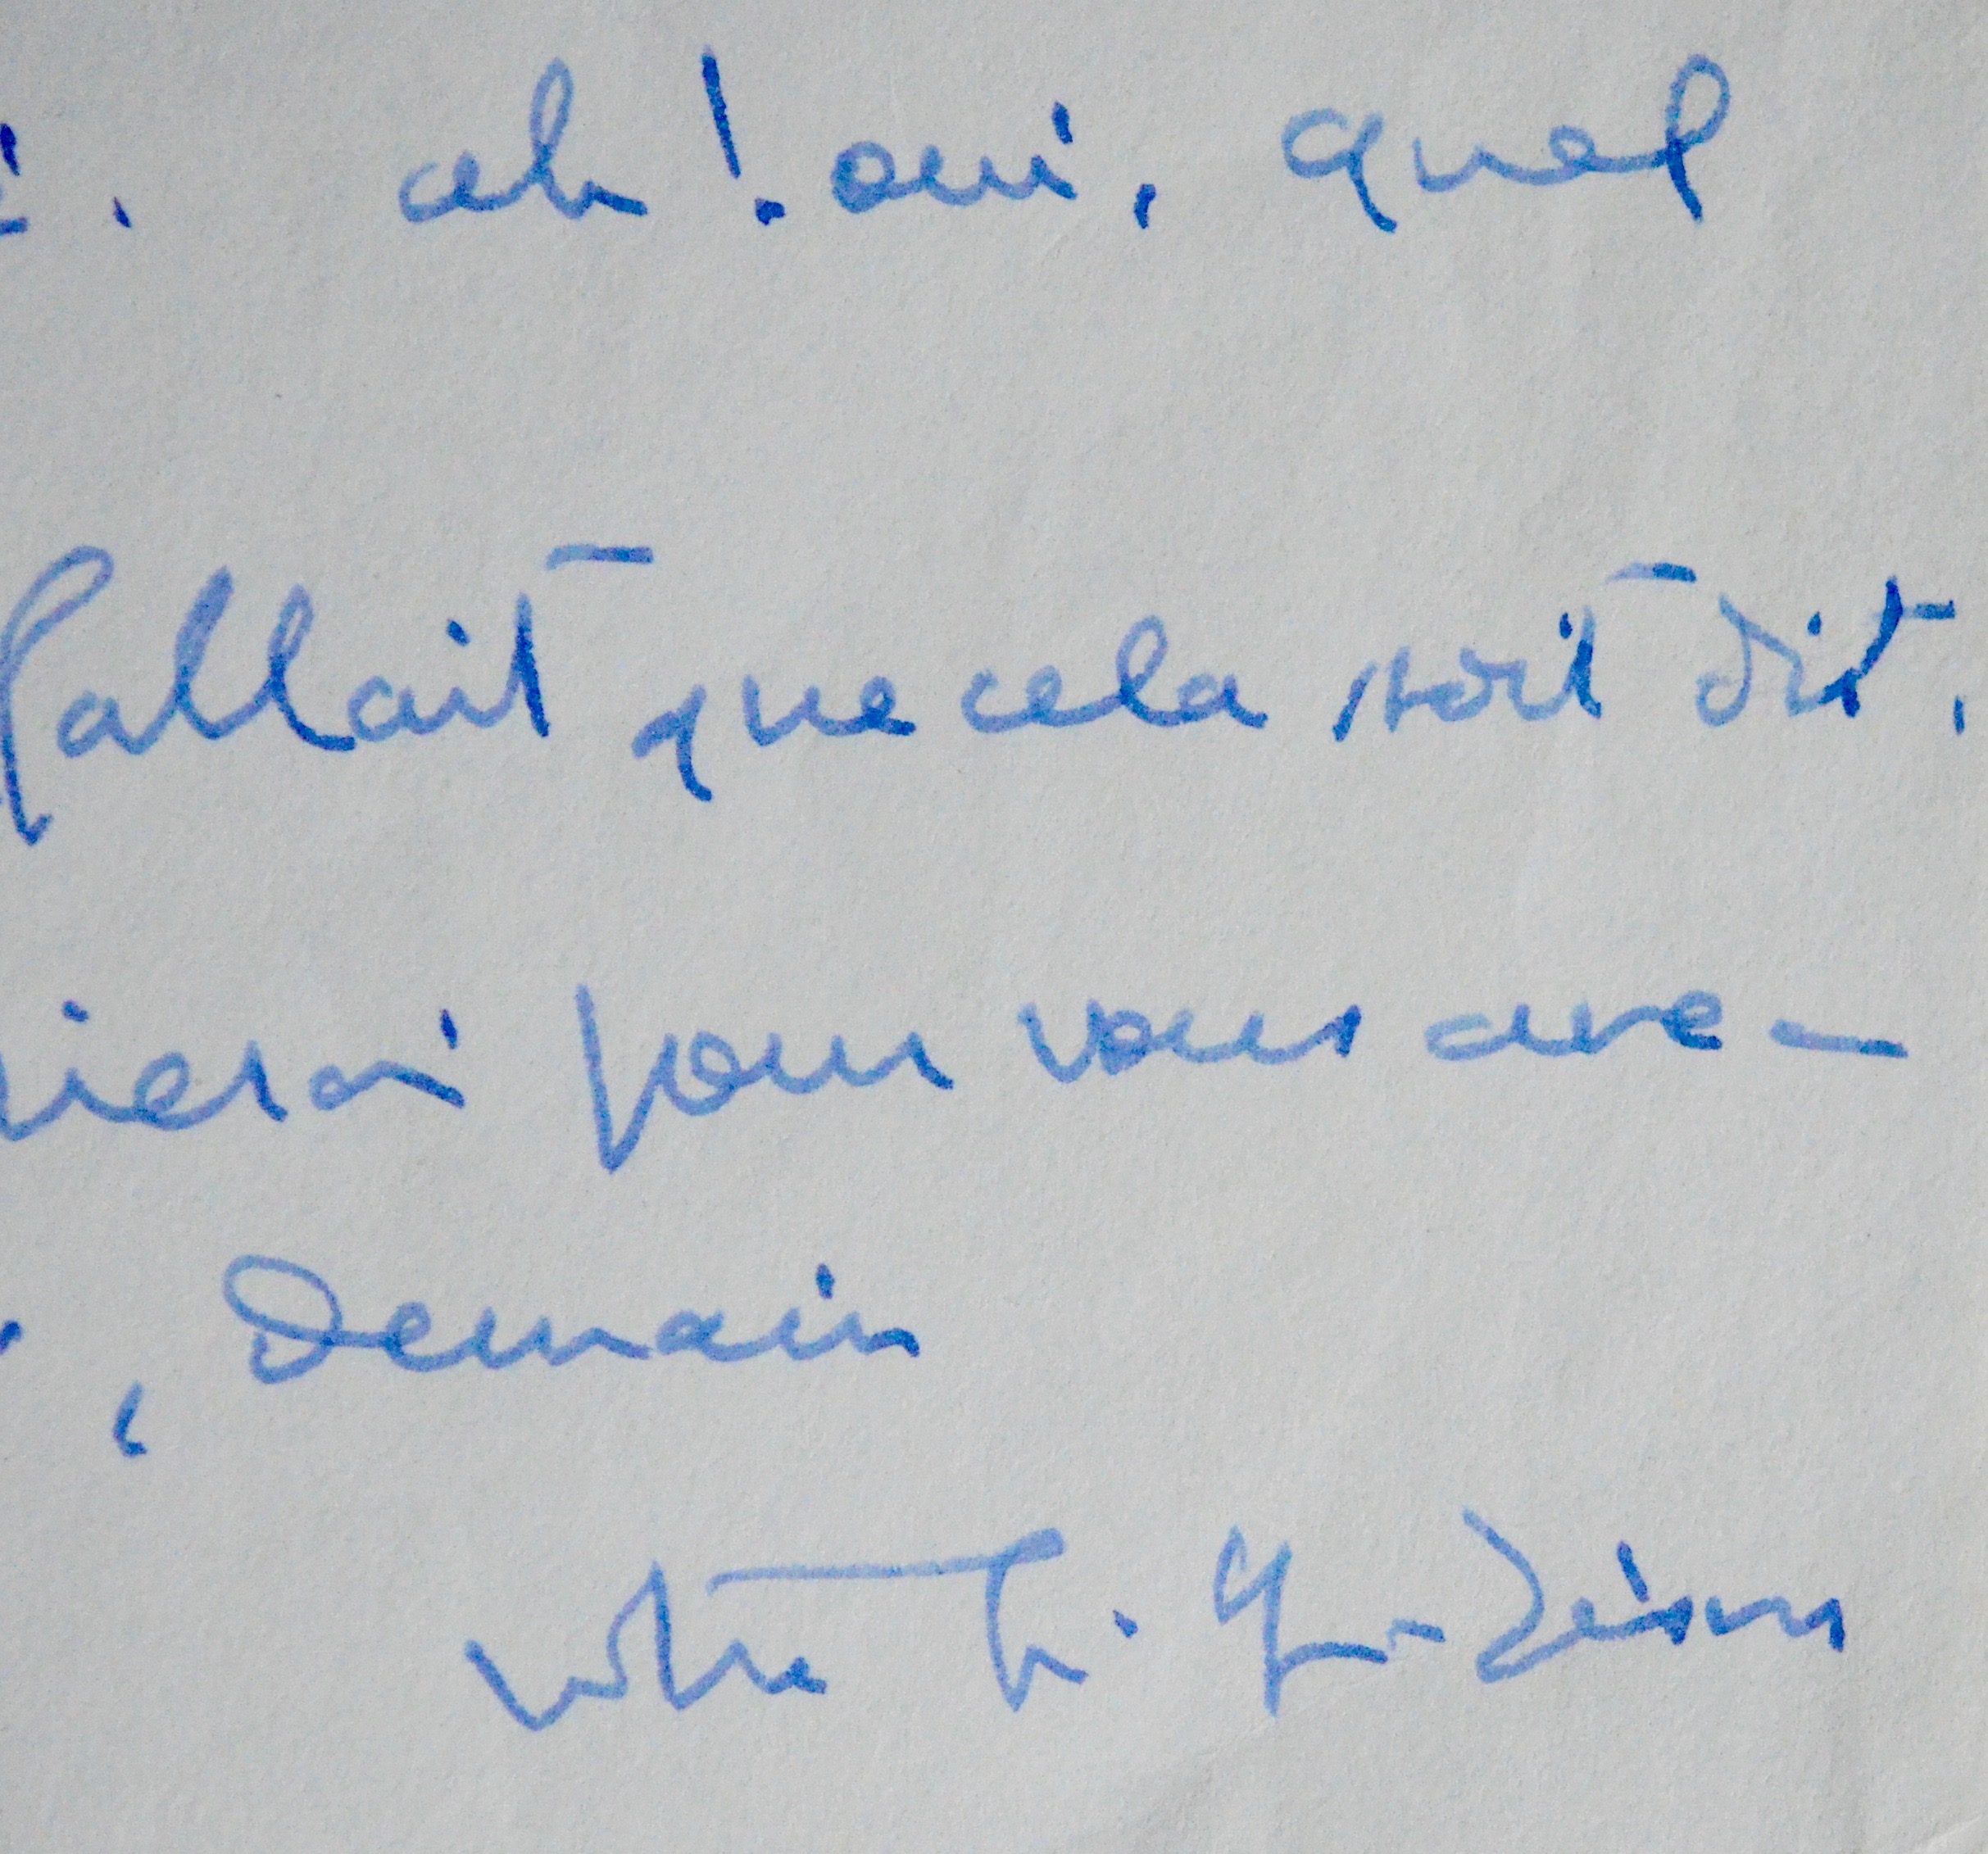 . ah ! oui, quel
fallait que cela soit dit.
pour vous ave-
, Demain
votre